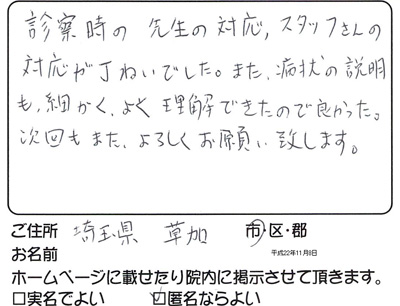 診察時の先生の対応,スタッフさんの
対応が丁ねいでした。また、病状の説明
も、細かく、よく理解できたので良かった。
次回もまた、よろしくお願い致します。
ご住所 埼玉県 草加 市・区・郡
お名前 平成22年11月8日
ホームページに載せたり院内に掲示させて頂きます。
□実名でよい ☑匿名ならよい